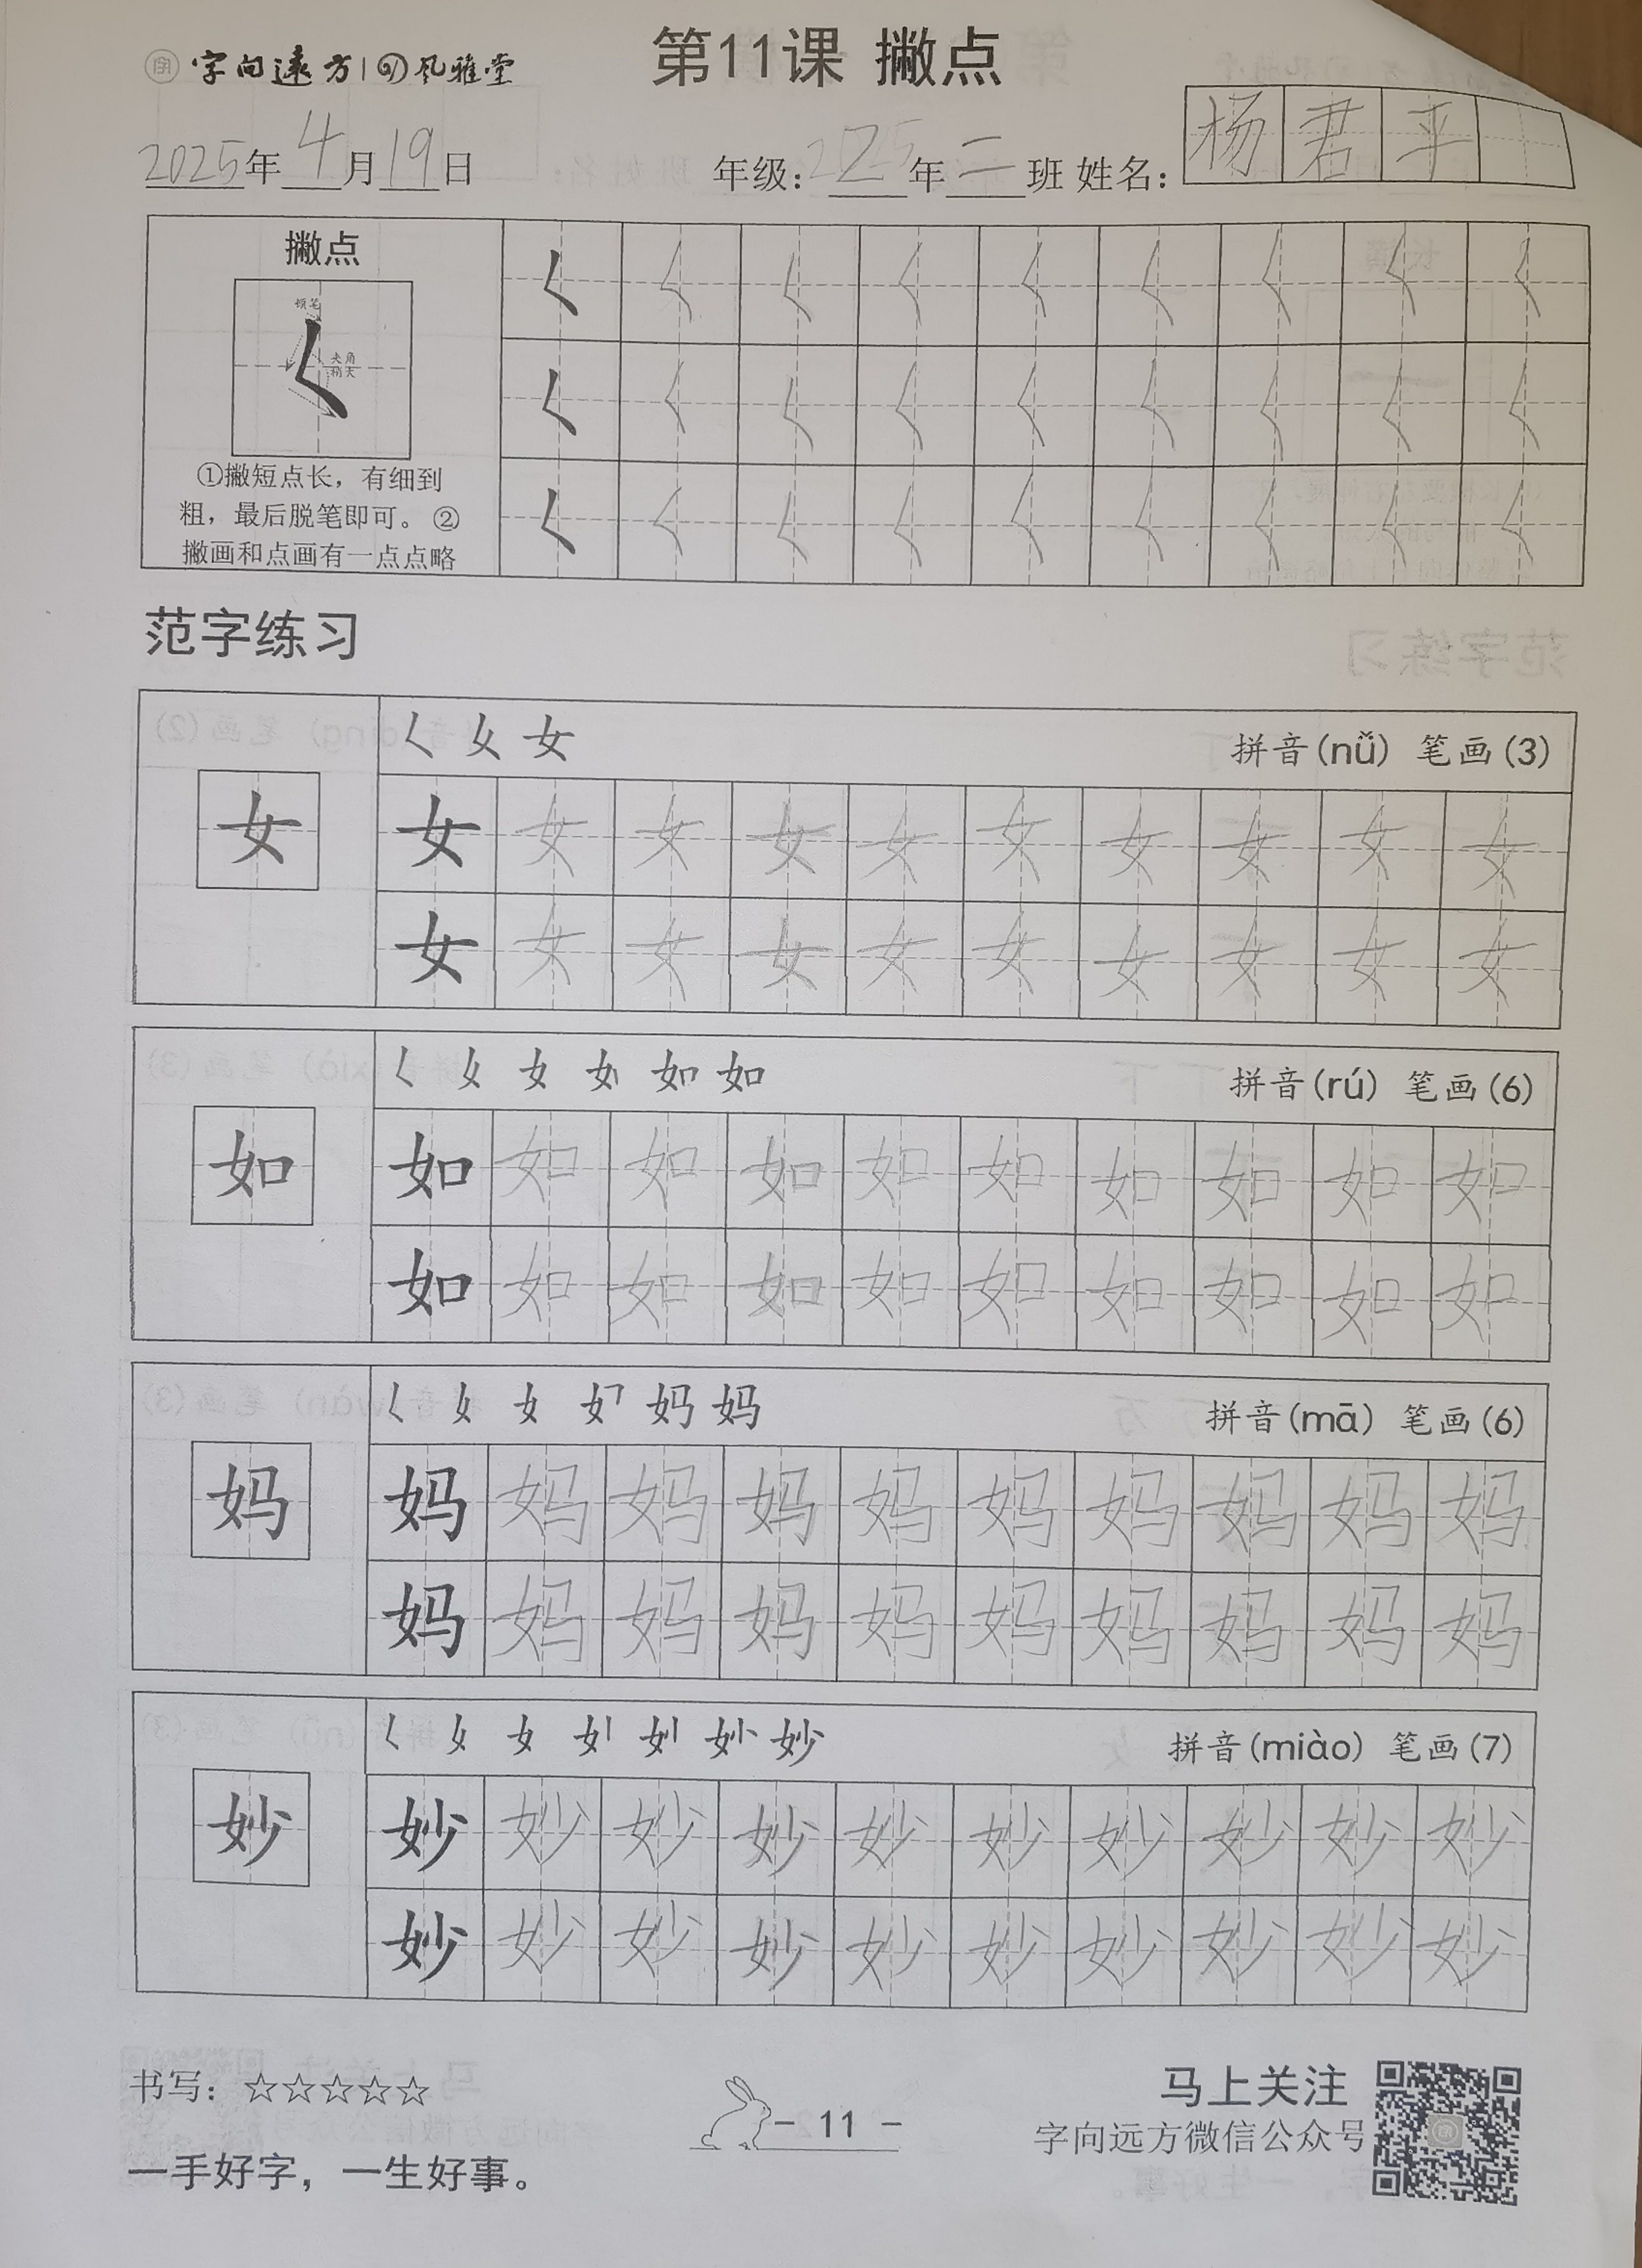 字向遠方 风雅堂
第11课 撇点
2025年4月19日 年级：年二班 姓名：杨君平
撇点
顿笔
夹角
稍大
①撇短点长，有细到
粗，最后脱笔即可。②
撇画和点画有一点点略
范字练习
女 拼音(nǚ) 笔画(3)
女 女 女 女 女 女 女 女 女 女 女
女 女 女 女 女 女 女 女 女 女
女 如 如 拼音(rú) 笔画(6)
如 如 如 如 如 如 如 如 如 如 如
如 如 如 如 如 如 如 如 如 如
女 妈 妈 拼音(mā) 笔画(6)
妈 妈 妈 妈 妈 妈 妈 妈 妈 妈 妈
妈 妈 妈 妈 妈 妈 妈 妈 妈 妈
女 妙 拼音(miào) 笔画(7)
妙 妙 妙 妙 妙 妙 妙 妙 妙 妙 妙
妙 妙 妙 妙 妙 妙 妙 妙 妙 妙
书写：☆☆☆☆☆
一手好字，一生好事。
- 11 -
马上关注
字向远方微信公众号